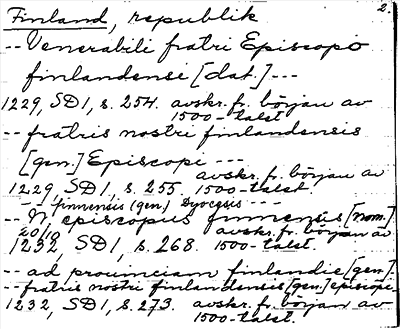 2.
Finland, republik
-- Venerabili fratri Episcopo
finlandensi [dat.] ---
1229, SD 1, s. 254. avskr. fr. början av
1500-talet
-- fratris nostri finlandensis
[gen.] Episcopi ---
avskr. fr. början av
1229, SD 1, s. 255. 1500-talet
-- finnensis (gen.) dyocesis ---
-- N episcopus finnensis [nom.]
20/10 avskr. fr. början av
1232, SD 1, s. 268. 1500-talet.
-- ad prouinciam finlandie [gen.]
-- fratris nostri finlandensis [gen.] episcopi
1232, SD 1, s. 273. avskr. fr. början av
1500-talet.